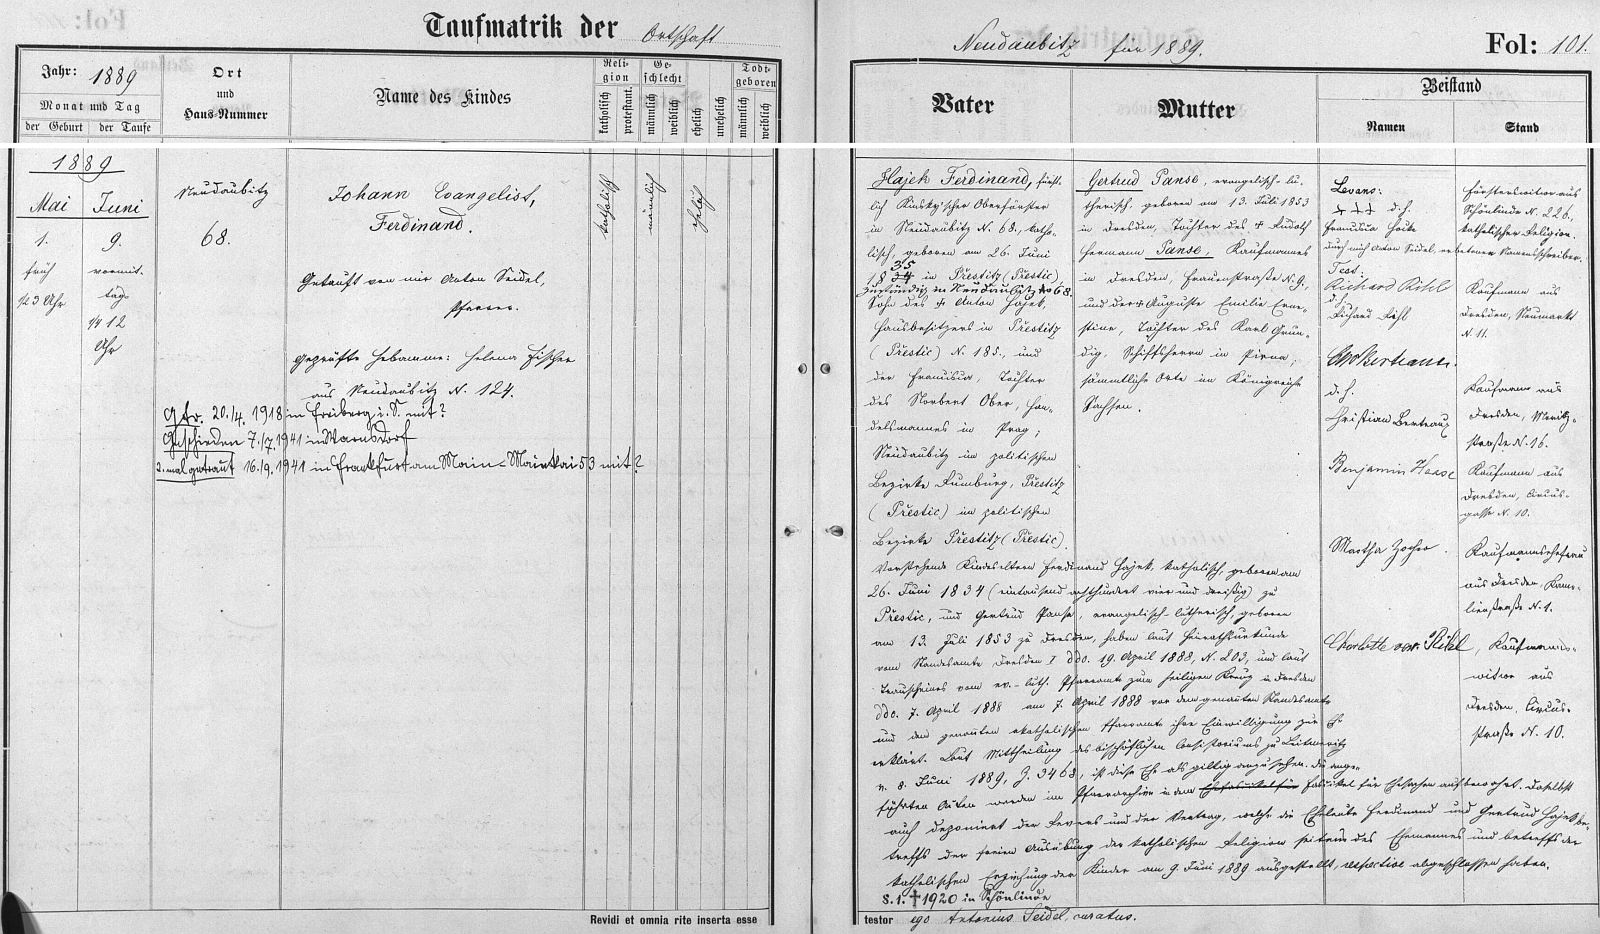 Taufmatrik der Ortschaft
Neudaubitz für 1889.
Fol: 101.
Jahr: 1889
Monat und Tag
der Geburt
der Taufe
Ort
und
Haus-Nummer
Name des Kindes
Reli-
gion
katholisch
protestant.
Ge-
schlecht
männlich
weiblich
ehelich
unehelich
Todt-
geboren
männlich
weiblich
Vater
Mutter
Beistand
Namen
Stand
1889
Mai
1.
früh
1/2 3 Uhr
Juni
9.
vormit-
tag
1/4 12
Uhr
Neudaubitz
68.
Johann Evangelist,
Ferdinand.
Getauft von mir Anton Seidel,
Pfarrer.
Geprüfte Hebamme: Helena Fischer
aus Neudaubitz N. 124.
katholisch
männlich
ehelich
Getr. 20./4. 1918 in Freiberg i. S. mit?
Geschieden 7./7. 1941 in Warnsdorf
2. mal getraut 16./9. 1941 in Frankfurt am Main - Mainkai 53 mit?
Hajek Ferdinand, fürst-
lich Kinsky'scher Oberförster
in Neudaubitz N. 68., katho-
lisch, geboren am 26. Juni
1834 35 in Přestitz (Prestic)
zuständig in Neudaubitz No 68.
Sohn des † Anton Hajek,
Hausbesitzers in Přestitz
(Přestic) N. 185., und
der Franziska, Tochter
des Norbert Ober, Han-
delsmannes in Prag;
Neudaubitz im politischen
Bezirke Rumburg, Přestitz
(Přestic) im politischen
Bezirke Přestitz (Prestic).
Gertrud Panse, evangelisch-lu-
therisch, geboren am 13. Juli 1853
in Dresden, Tochter des † Rudolf
Hermann Panse, Kaufmannes
in Dresden, Frauenstraße N. 9.,
und der † Auguste Emilie Erne-
stine, Tochter des Karl Grun-
dig, Schiffsherrn in Pirna;
sämmtliche Orte im Königreiche
Sachsen.
Vorstehende Kindeseltern Ferdinand Hajek, katholisch, geboren am
26. Juni 1834 (eintausend achthundert vier und dreißig) zu
Přestic, und Gertrud Panse, evangelisch-lutherisch, geboren
am 13. Juli 1853 zu Dresden, haben laut Heirathsurkunde
vom Standesamte Dresden I ddo. 19. April 1888, N. 203, und laut
Trauscheines vom ev.-luth. Pfarramte zum heiligen Kreuz in Dresden
ddo. 7. April 1888 am 7. April 1888 vor dem genannten Standesamte
und dem genannten akatholischen Pfarramte ihre Einwilligung zur Ehe
erklärt. Laut Mittheilung des bischöflichen Consistoriums zu Leitmeritz
v. 8. Juni 1889, Z. 3468, ist diese Ehe als giltig anzusehen. Die ange-
führten Akten werden im Pfarrarchive in dem Faszikel für Ehesachen aufbewahrt. Daselbst
auch deponiert der Revers und der Vertrag, welche die Eheleute Ferdinand und Gertrud Hajek be-
treffs der freien Ausübung der katholischen Religion seitens des Ehemannes und betreffs der
katholischen Erziehung der Kinder am 9. Juni 1889 ausgestellt, abgeschlossen haben.
8.1. † 1920 in Schönlinde
Levans:
††† d. h.
Franziska
durch mich Anton Seidel, erbetenen Namensschreiber.
Försterswitwe aus
Schönlinde N. 226.,
katholischer Religion.
Test:
Richard Rihl
d. h.
Richard Rihl
Kaufmann aus
Dresden, Neumarkt
N. 11.
Chr Berteaux
d. h.
Christian Berteaux
Kaufmann aus
Dresden, Moritz-
straße N. 16.
Benjamin Haase
Kaufmann aus
Dresden, Circus-
gasse N. 10.
Martha Zocher.
Kaufmannsehefrau
aus Dresden,
Charlotte verw.
Kaufmanns-
witwe aus
Dresden, Circus-
straße N. 10.
Revidi et omnia rite inserta esse
testor ego Antonius Seidel, curatus.